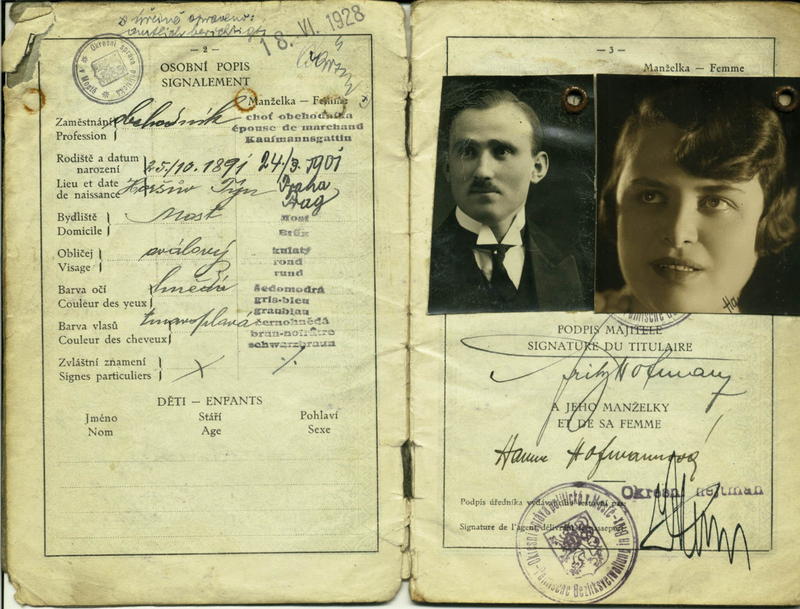 Z úřední opraveno:
amtlich berichtigt
18. VI. 1928
— 2 —
OSOBNÍ POPIS
SIGNALEMENT
Manželka — Femme
Zaměstnání
Profession
obchodník
choť obchodníka
épouse de marchand
Kaufmannsgattin
Rodiště a datum
narození
Lieu et date
de naissance
25/10. 1891
Horšův Týn
24/3. 1901
Praha
Prag
Bydliště
Domicile
Most
Most
Brüx
Obličej
Visage
oválový
kulatý
rond
rund
Barva očí
Couleur des yeux
hnědá
šedomodrá
gris-bleu
graublau
Barva vlasů
Couleur des cheveux
tmavoplavá
černohnědá
brun-noirâtre
schwarzbraun
Zvláštní znamení
Signes particuliers
DĚTI — ENFANTS
Jméno Stáří Pohlaví
Nom Age Sexe
— 3 —
Manželka — Femme
PODPIS MAJITELE
SIGNATURE DU TITULAIRE
Fritz Hofmann
A JEHO MANŽELKY
ET DE SA FEMME
Hanne Hofmannová
Okresní hejtman
Podpis úředníka vydávajícího cestovní pas
Signature de l'agent délivrant le passeport
Okresní správa politická v Mostě
Politische Bezirksverwaltung in